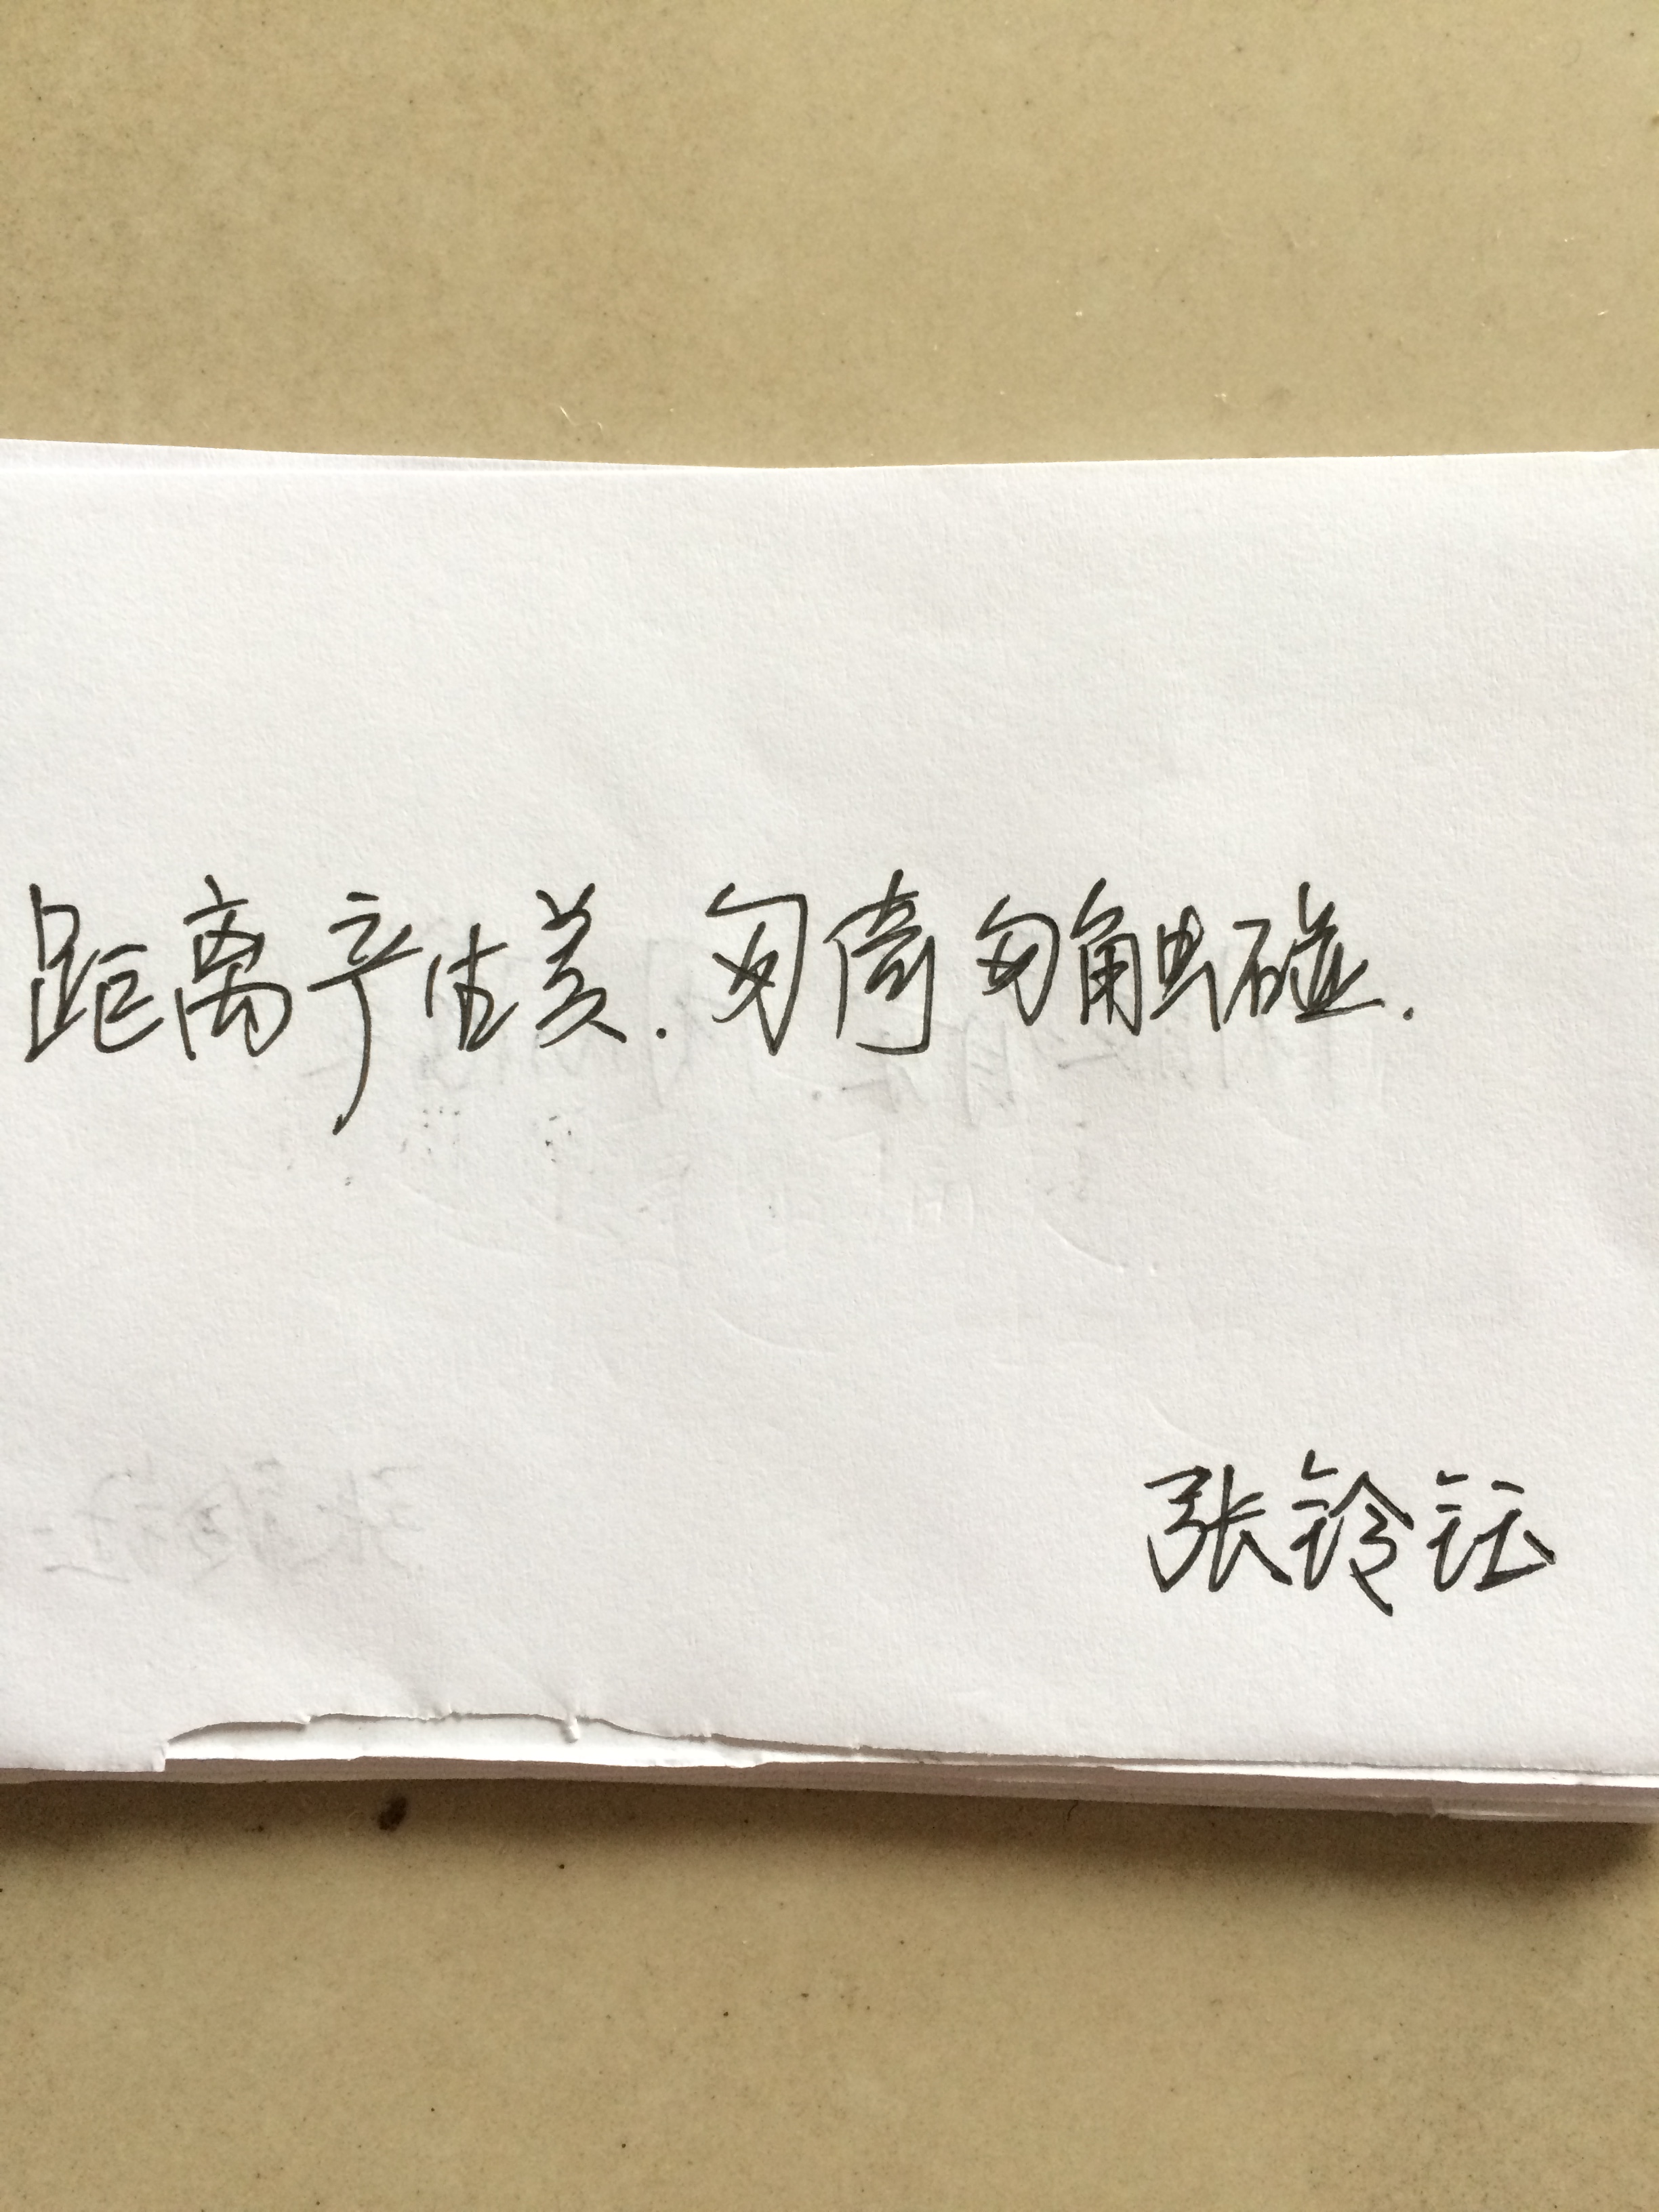 距离产生美.勿倚勿触碰.
张铃钰